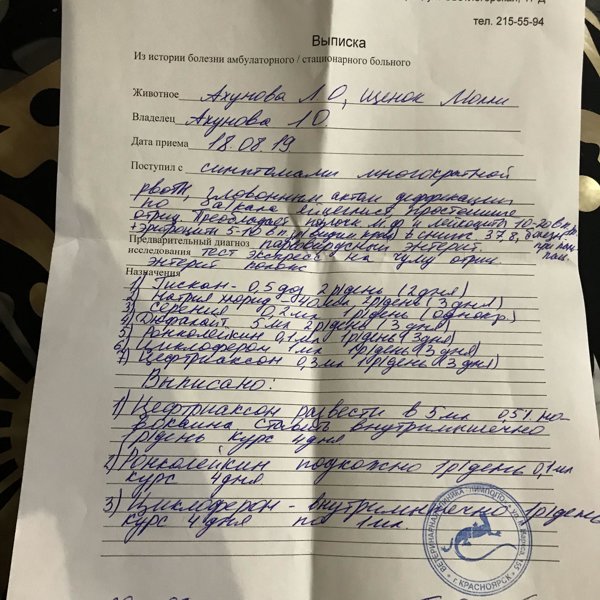 тел. 215-55-94
Выписка
Из истории болезни амбулаторного / стационарного больного
Животное Ахунова Л.О, щенок Молли
Владелец Ахунова Л.О.
Дата приема 18.08.19
Поступил с симптомами многократной
рвоты, зловонным актом дефекации
по анализ яйцеглист, простейшие
отриц. Преобладает
+Эритроциты 5-10 в п. в синька 37,8,
Предварительный диагноз парвовирусный энтерит
исследования тест экспресс на чуму отриц.
энтерит полож
Назначения
1) - 0,5 доз 2р/день (2дня)
2) Натрия хлорид 40мл 2р/день (3дня)
3) Серения 0,2мл 1р/день (однокр.)
4) Дюфалайт 5мл 2р/день (3 дня)
5) Ронколейкин 0,1мл 1р/день (3дня)
6) Циклоферон 1мл 1р/день (3 дня)
7) Цефтриаксон 0,3мл 1р/день (3 дня)
Выписано:
1) Цефтриаксон развести в 5мл 0,5% но-
вокаина ставить внутримышечно
1р/день курс 4дня
2) Ронколейкин подкожно 1р/день 0,1мл
курс 4дня
3) Циклоферон - внутримышечно 1р/день
курс 4дня по 1мл.
ВЕТЕРИНАРНАЯ КЛИНИКА "ЛИМПОПО"
г. КРАСНОЯРСК